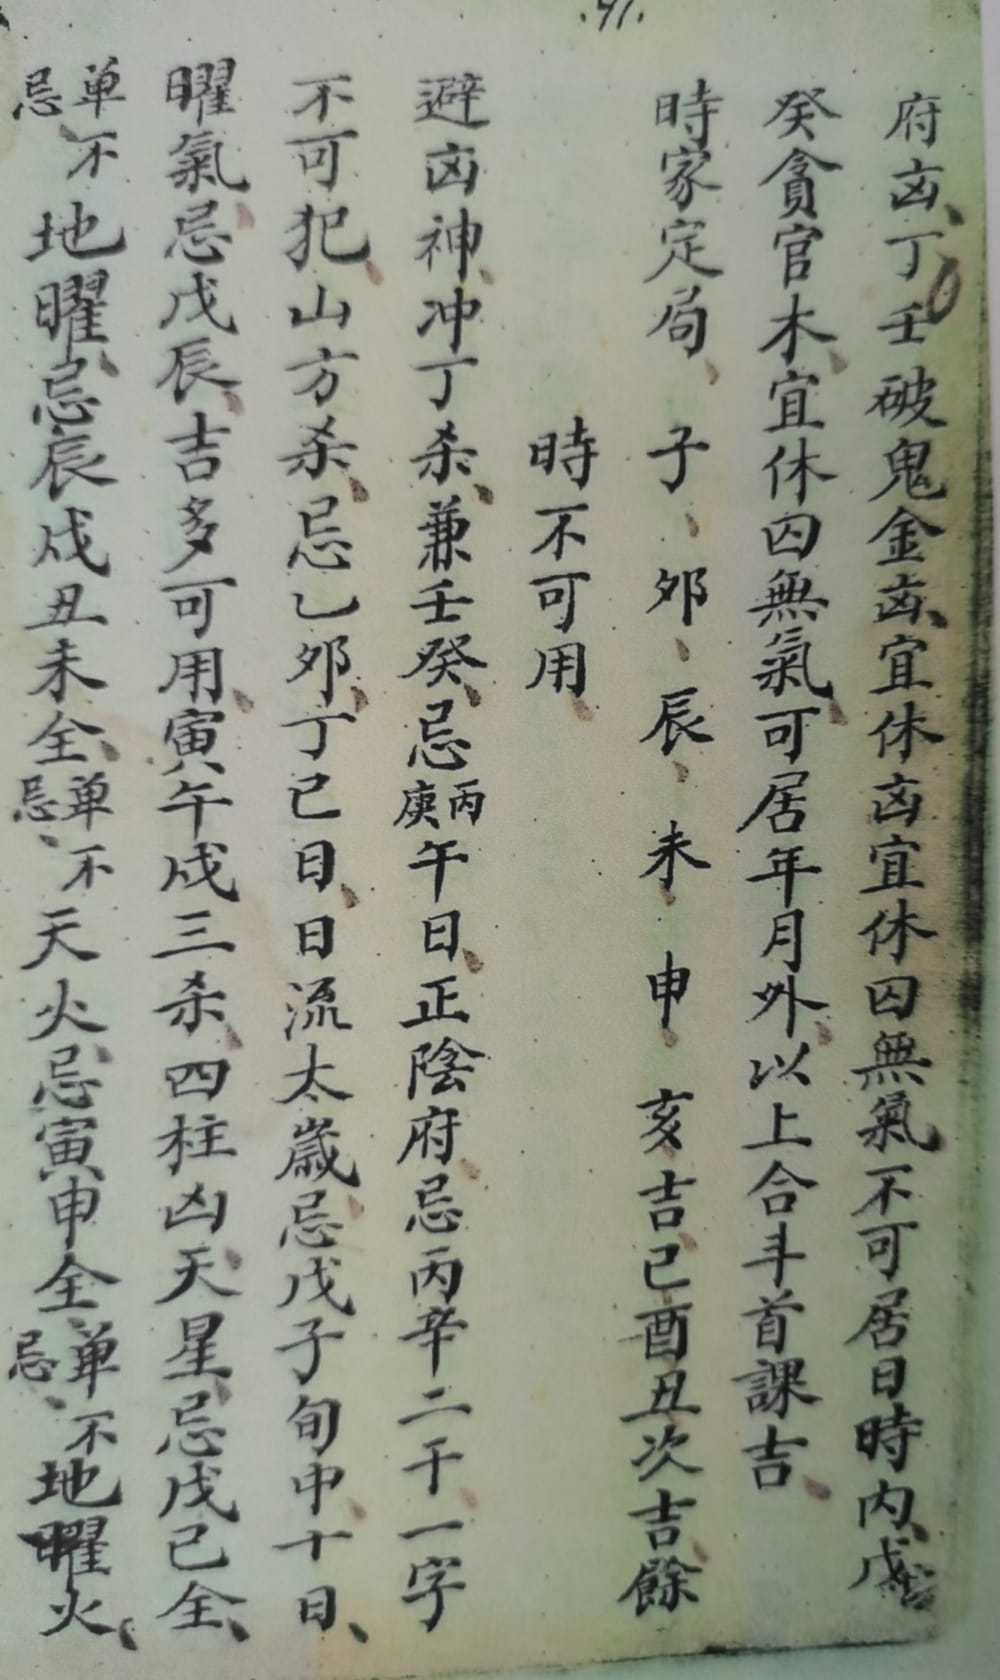 .41.
府凶、丁壬破鬼金凶、宜休凶宜休囚無氣不可居日時内、戊
癸貪官木、宜休囚無氣、可居年月外、以上合斗首課吉、
時家定局、子、夘、辰、未、申、亥吉、巳酉丑次吉、餘
時不可用、
避凶神、冲丁杀、兼壬癸、忌丙庚午日、正陰府、忌丙辛二干一字
不可犯、山方杀、忌乙夘、丁巳日、日流太歲、忌戊子旬中十日、
曜氣、忌戊辰、吉多可用、寅午戍三杀、四柱凶天、星、忌戊己全、
单不忌、地曜、忌辰戍丑未全、单不忌、天火、忌寅申全、单不忌、地曜火、